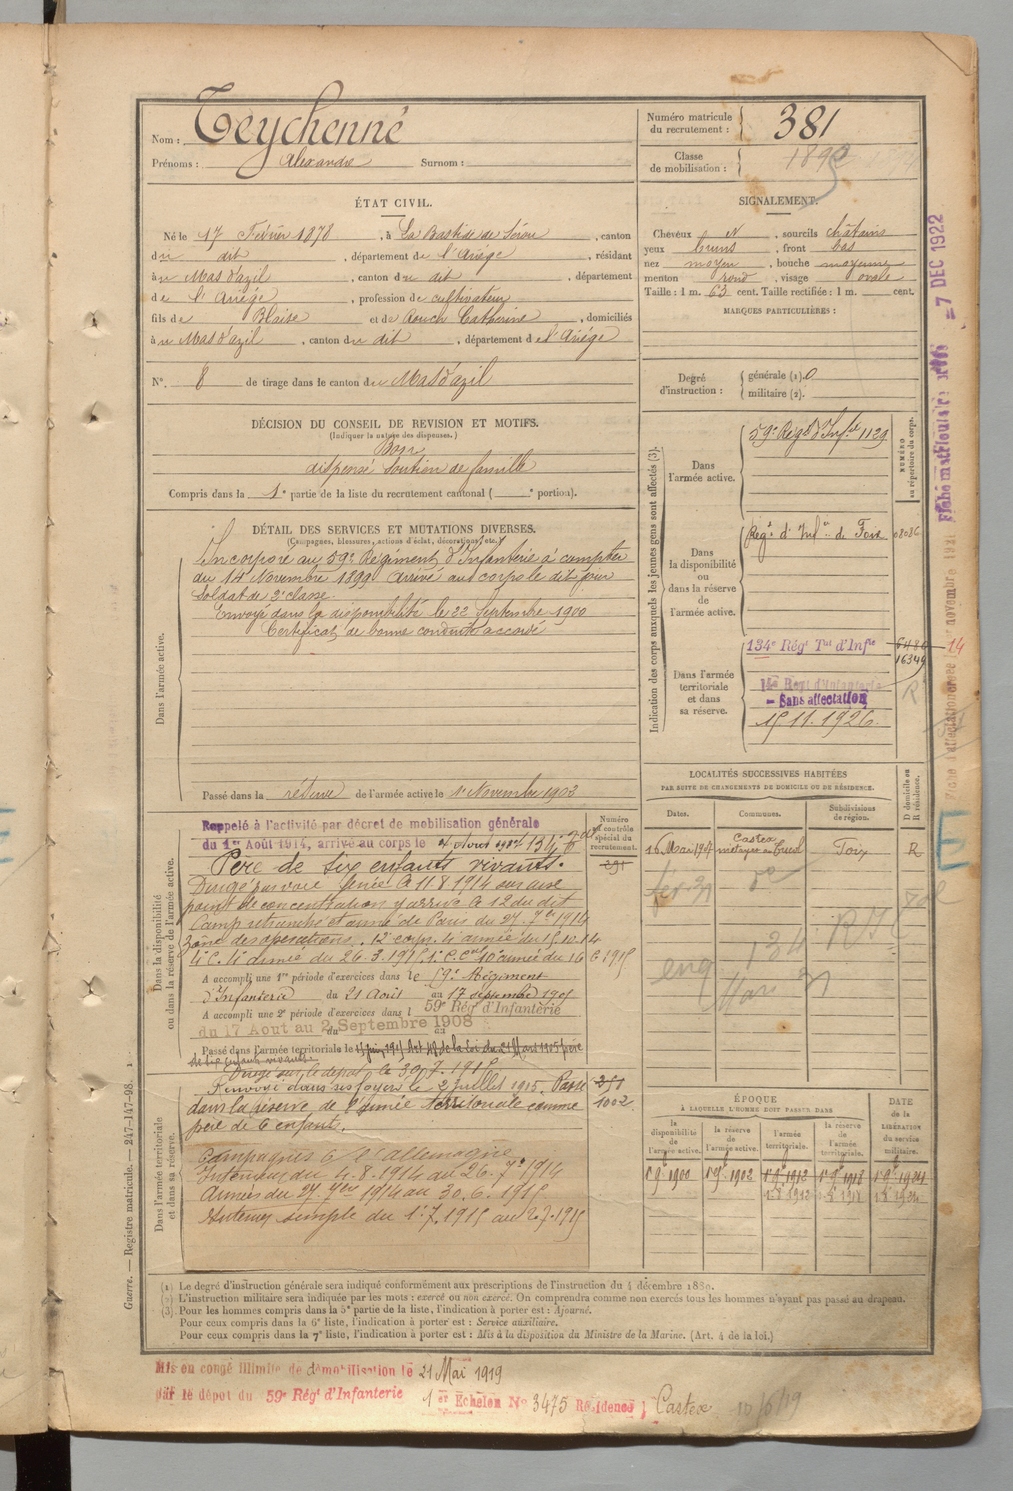 Nom : Teychenné
Prénoms : Alexandre Surnom :
Numéro matricule du recrutement : 381
Classe de mobilisation : 189
ÉTAT CIVIL.
Né le 17 Février 1878, à La Bastide de Sérou, canton
du dit, département de l'Ariége, résidant
à u Mas d'azil, canton du dit, département
de l'Ariége, profession de cultivateur
fils de Blaise et de Rouch Catherine, domiciliés
à u Mas d'azil, canton du dit, département de l'Ariége
N°. 8 de tirage dans le canton du Mas d'azil
SIGNALEMENT.
Cheveux N, sourcils châtains
yeux bruns, front bas
nez moyen, bouche moyenne
menton rond, visage ovale
Taille : 1 m. 63 cent. Taille rectifiée : 1 m. cent.
MARQUES PARTICULIÈRES :
Degré d'instruction : générale (1). 0
militaire (2).
DÉCISION DU CONSEIL DE REVISION ET MOTIFS.
(Indiquer la nature des dispenses.)
Bon
dispensé Soutien de famille
Compris dans la 1e partie de la liste du recrutement cantonal ( e portion).
DÉTAIL DES SERVICES ET MUTATIONS DIVERSES.
(Campagnes, blessures, actions d'éclat, décorations, etc.)
Dans l'armée active.
Incorporé au 59e Régiment d'Infanterie à compter
du 14 Novembre 1899. Arrivé au corps le dit jour
Soldat de 2e classe.
Envoyé dans la disponibilité le 22 Septembre 1900
Certificat de bonne conduite accordé
Passé dans la réserve de l'armée active le 1er Novembre 1902
Indication des corps auxquels les jeunes gens sont affectés (3).
NUMÉRO au répertoire du corps.
Dans l'armée active.
59e Régt d'Infie 1129
Dans la disponibilité ou dans la réserve de l'armée active.
Régt d'Infie de Foix 08086
Dans l'armée territoriale et dans sa réserve.
134e Régt Tal d'Infie 6480 14
16349
14e Regt d'Infanterie
Sans affectation
15.11.1926
LOCALITÉS SUCCESSIVES HABITÉES
PAR SUITE DE CHANGEMENTS DE DOMICILE OU DE RÉSIDENCE.
Dates. Communes. Subdivisions de région. D domicile ou R résidence.
16 Mai Castex Foix R
Dans la disponibilité ou dans la réserve de l'armée active.
Numéro au contrôle spécial du recrutement.
Rappelé à l'activité par décret de mobilisation générale
du 1er Août 1914, arrivé au corps le 4 Août 1914 134e
Père de six enfants vivants.
Dirigé par voie ferrée le 11 8 1914 sur une
point de concentration y arrive le 12 du dit
Camp retranché et armée de Paris du 27. 7bre 1914
Zône des opérations. 12e corps 4e armée du 15.10.14
A accompli une 1re période d'exercices dans le 59e Régiment
d'Infanterie du 21 Août au 17 septembre 1905
A accompli une 2e période d'exercices dans l 59e Rég d'Infanterie
du 17 Aout au 2 Septembre 1908
Passé dans l'armée territoriale le
de six enfants vivants
Dirigé sur le dépôt le 30.7.1915
Dans l'armée territoriale et dans sa réserve.
Renvoyé dans ses foyers le 2 Juillet 1915. Passé
dans la réserve de l'armée territoriale comme
père de 6 enfants.
1002
Campagnes C l'allemagne
Intérieur du 4.8.1914 au 26.7bre 1914
Armées du 27 7bre 1914 au 30.6.1915
Intérieur simple du 1er.7.1915 au 2.7.1915
ÉPOQUE
A LAQUELLE L'HOMME DOIT PASSER DANS
la disponibilité de l'armée active. la réserve de l'armée active. l'armée territoriale. la réserve de l'armée territoriale.
DATE de la LIBÉRATION du service militaire.
1er 9bre 1900 1er 9bre 1902 1er 9bre 1912 1er 9bre 1918 1er 9bre 1924
(1) Le degré d'instruction générale sera indiqué conformément aux prescriptions de l'instruction du 4 décembre 1889.
(2) L'instruction militaire sera indiquée par les mots : exercé ou non exercé. On comprendra comme non exercés tous les hommes n'ayant pas passé au drapeau.
(3) Pour les hommes compris dans la 5e partie de la liste, l'indication à porter est : Ajourné.
Pour ceux compris dans la 6e liste, l'indication à porter est : Service auxiliaire.
Pour ceux compris dans la 7e liste, l'indication à porter est : Mis à la disposition du Ministre de la Marine. (Art. 4 de la loi.)
Mis en congé illimité de démobilisation le 21 Mai 1919
par le dépot du 59e Régt d'Infanterie 1er Échelon N° 3475 Résidence Castex 10/6/19
Guerre. — Registre matricule. — 247-147-98.
7 DEC 1922